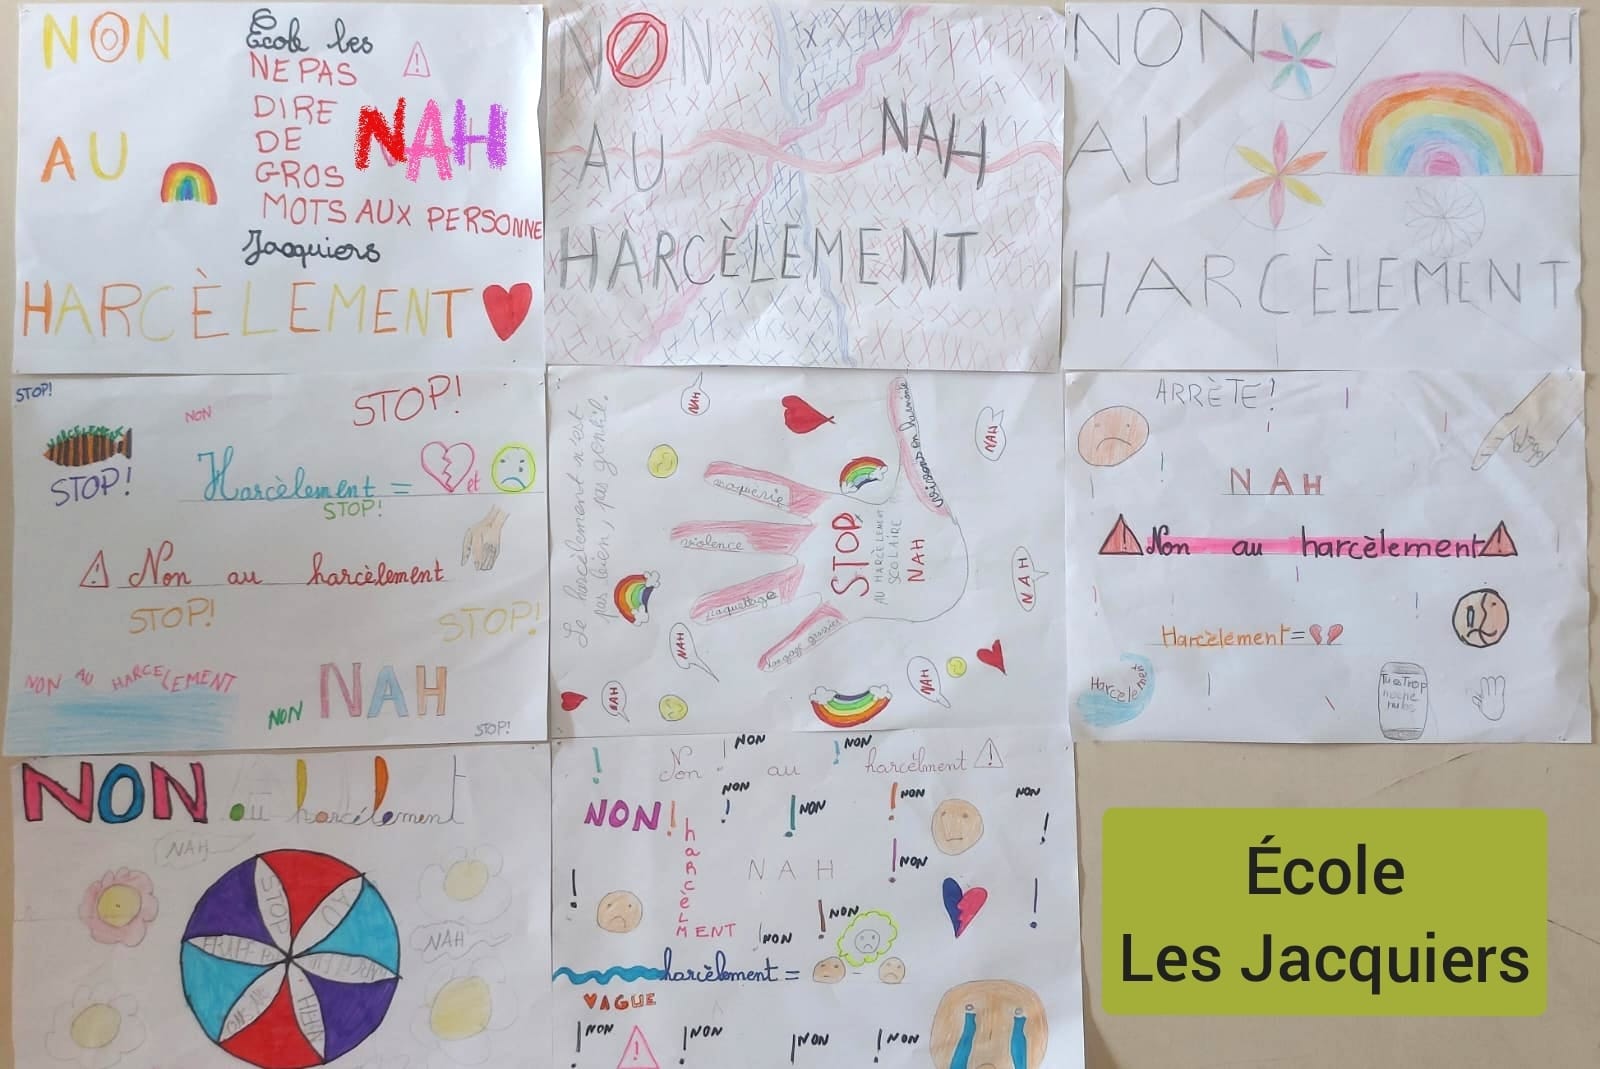 NON
École les
NE PAS
DIRE
DE
GROS
MOTS AUX PERSONNE
Jacquiers
NAH
AU
HARCÈLEMENT
NON
AU
NAH
HARCÈLEMENT
NON
NAH
AU
HARCÈLEMENT
STOP!
NON
STOP!
HARCÈLEMENT
STOP!
Harcèlement =
et
STOP!
Non au harcèlement
STOP!
STOP!
NON AU HARCELEMENT
NON
NAH
STOP!
Le harcèlement n'est
pas bien, pas gentil.
NAH
NAH
vivons en harmonie
moquerie
violence
raquettage
langage grossier
STOP
AU HARCÈLEMENT
SCOLAIRE
NAH
NAH
NAH
NAH
NAH
ARRÈTE!
NAH
Non au harcèlement
Harcèlement=
Harcèlement
Tu es Trop
NON
au harcélement
NAH
STOP
AU
NAH
NON
Non au harcèlment
NON
NON
NON
NON
NON
NON
NON!
harcèlMENT
NAH
NON
NON
NON
harcèlement =
VAGUE
NON
NON
NON
NON
École
Les Jacquiers